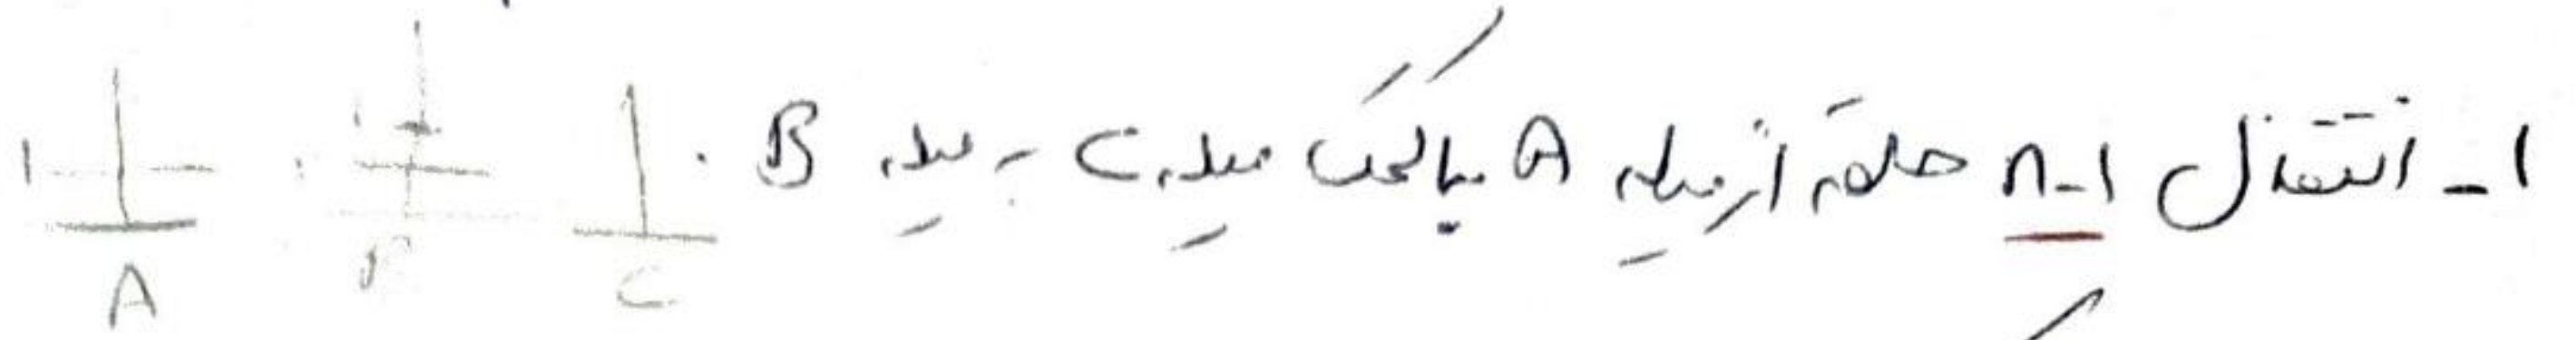 ۱ - انتقال n-۱ حلقه از میله A با کمک میله C به میله B .
A B C